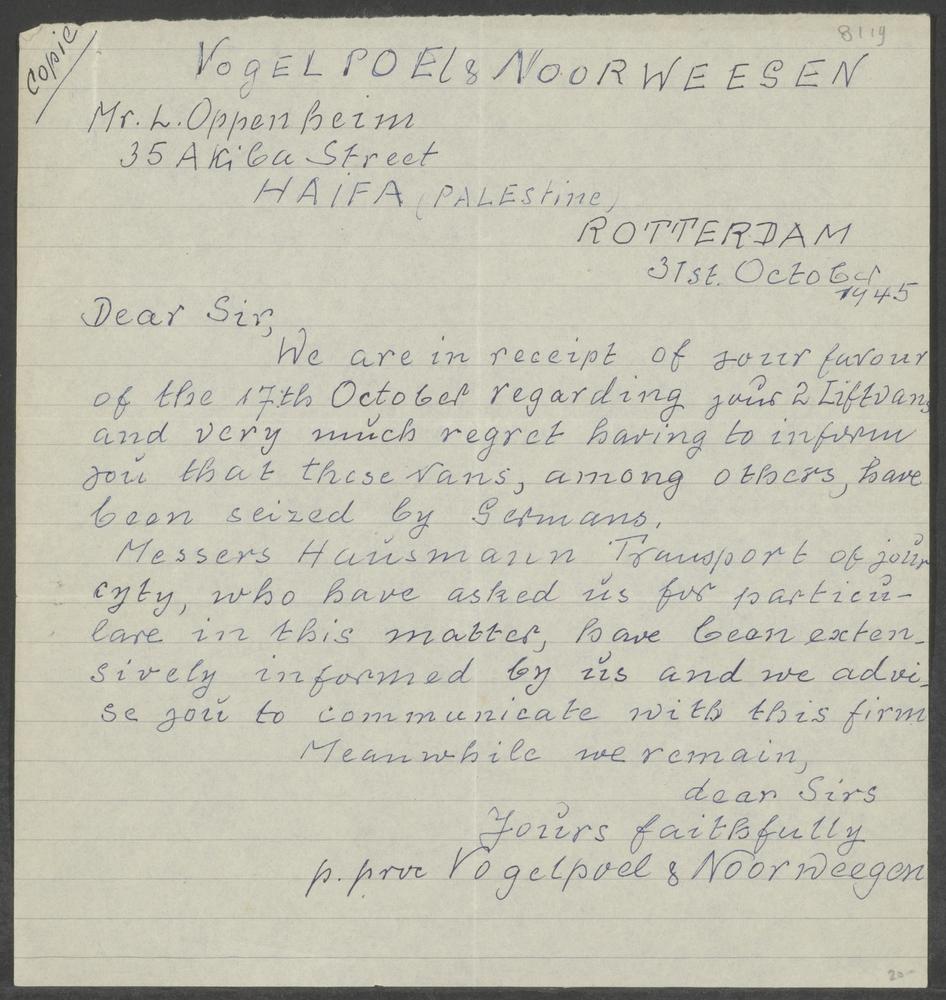 copie
8119
VOGELPOEL & NOORWEESEN
Mr. L. Oppenheim
35 Akiba Street
HAIFA (PALEStine)
ROTTERDAM
31st. October
1945
Dear Sir,
We are in receipt of your favour
of the 17th October regarding your 2 Liftvans
and very much regret having to inform
you that these vans, among others, have
been seized by Germans.
Messers Hausmann Transport of your
cyty, who have asked us for particu-
lare in this matter, have been exten-
sively informed by us and we advi-
se you to communicate with this firm
Meanwhile we remain,
dear Sirs
Yours faithfully
p. proc Vogelpoel & Noorweegen
20-